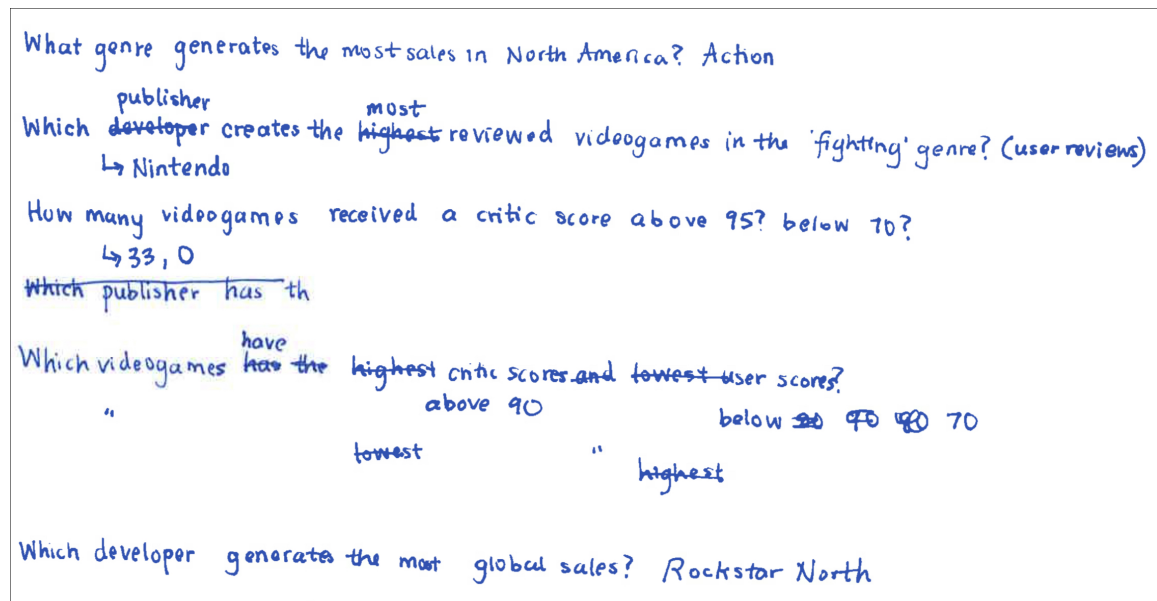 What genre generates the most sales in North America? Action
publisher most
Which developer creates the highest reviewed videogames in the 'fighting' genre? (user reviews)
↳ Nintendo
How many videogames received a critic score above 95? below 70?
↳ 33, 0
Which publisher has th
have
Which videogames has the highest critic scores and lowest user scores?
" above 90 below 90 80 70
lowest " highest
Which developer generates the most global sales? Rockstar North